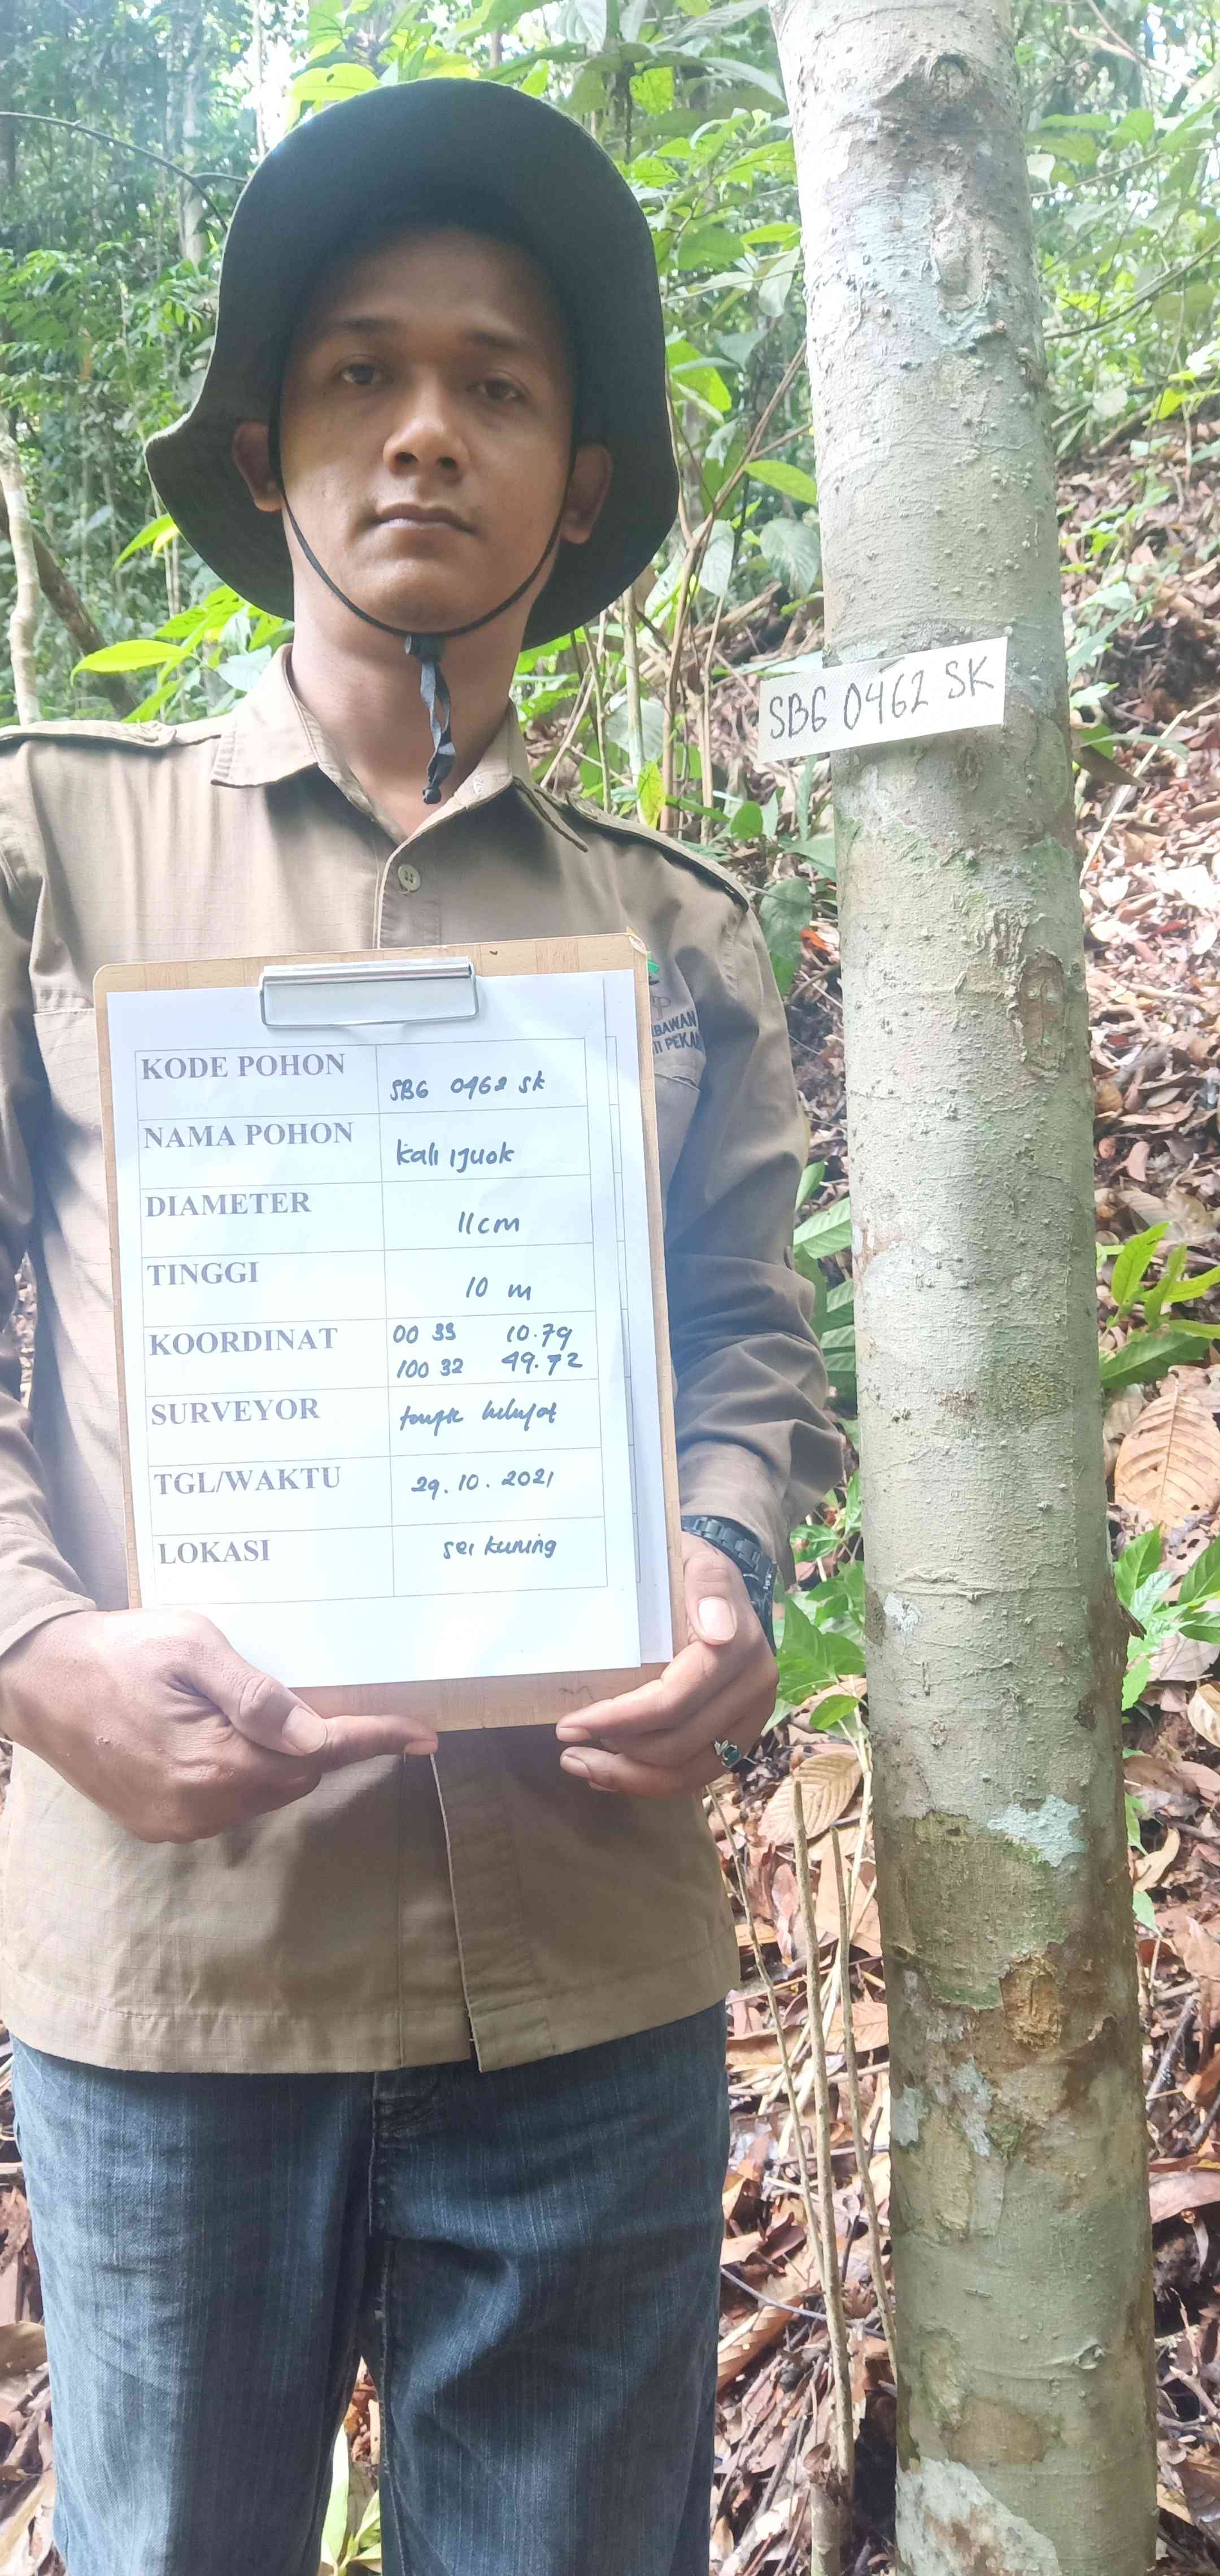 SBG 0462 SK
BAWAN
TI PEKA
KODE POHON SBG 0462 SK
NAMA POHON kali ijuok
DIAMETER 11 cm
TINGGI 10 m
KOORDINAT 00 33 10.79
100 32 49.72
SURVEYOR taufik hidayat
TGL/WAKTU 29.10.2021
LOKASI sei kuning